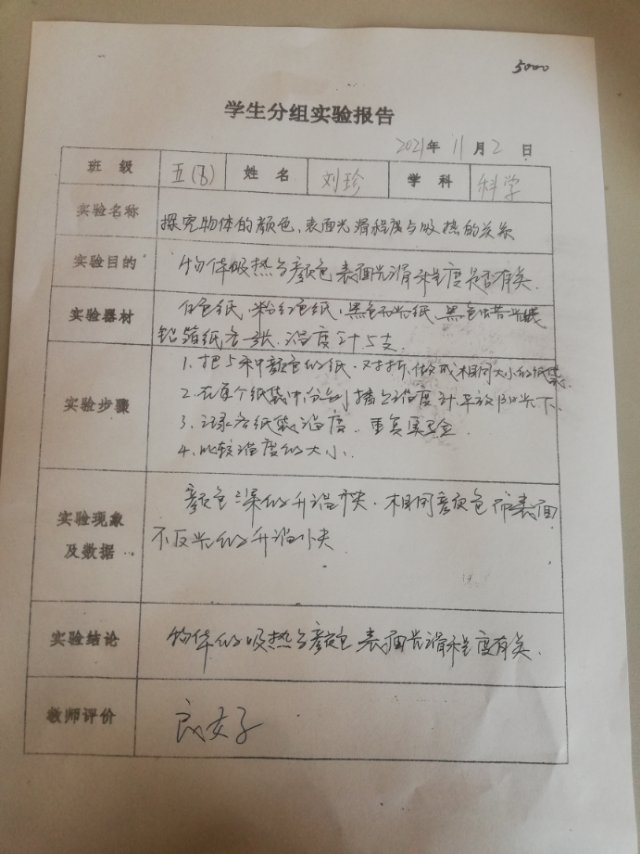 5000
学生分组实验报告
2021年 11月 2 日
班 级 五(8) 姓 名 刘珍 学 科 科学
实验名称 探究物体的颜色、表面光滑程度与吸热的关系
实验目的 物体吸热与颜色表面光滑程度是否有关.
实验器材 白色纸、粉红色纸、黑色 纸、黑色蜡光纸
铝箔纸各一张.温度计5支.
实验步骤 1.把5种颜色的纸.对折,做成相同大小的纸袋
2.在每个纸袋中分别插上温度计平放阳光下.
3.记录各纸袋温度.重复实验
4.比较温度的大小.
实验现象
及数据
颜色深的升温快.相同颜色而表面
不反光的升温快
实验结论 物体的吸热与颜色表面光滑程度有关.
教师评价